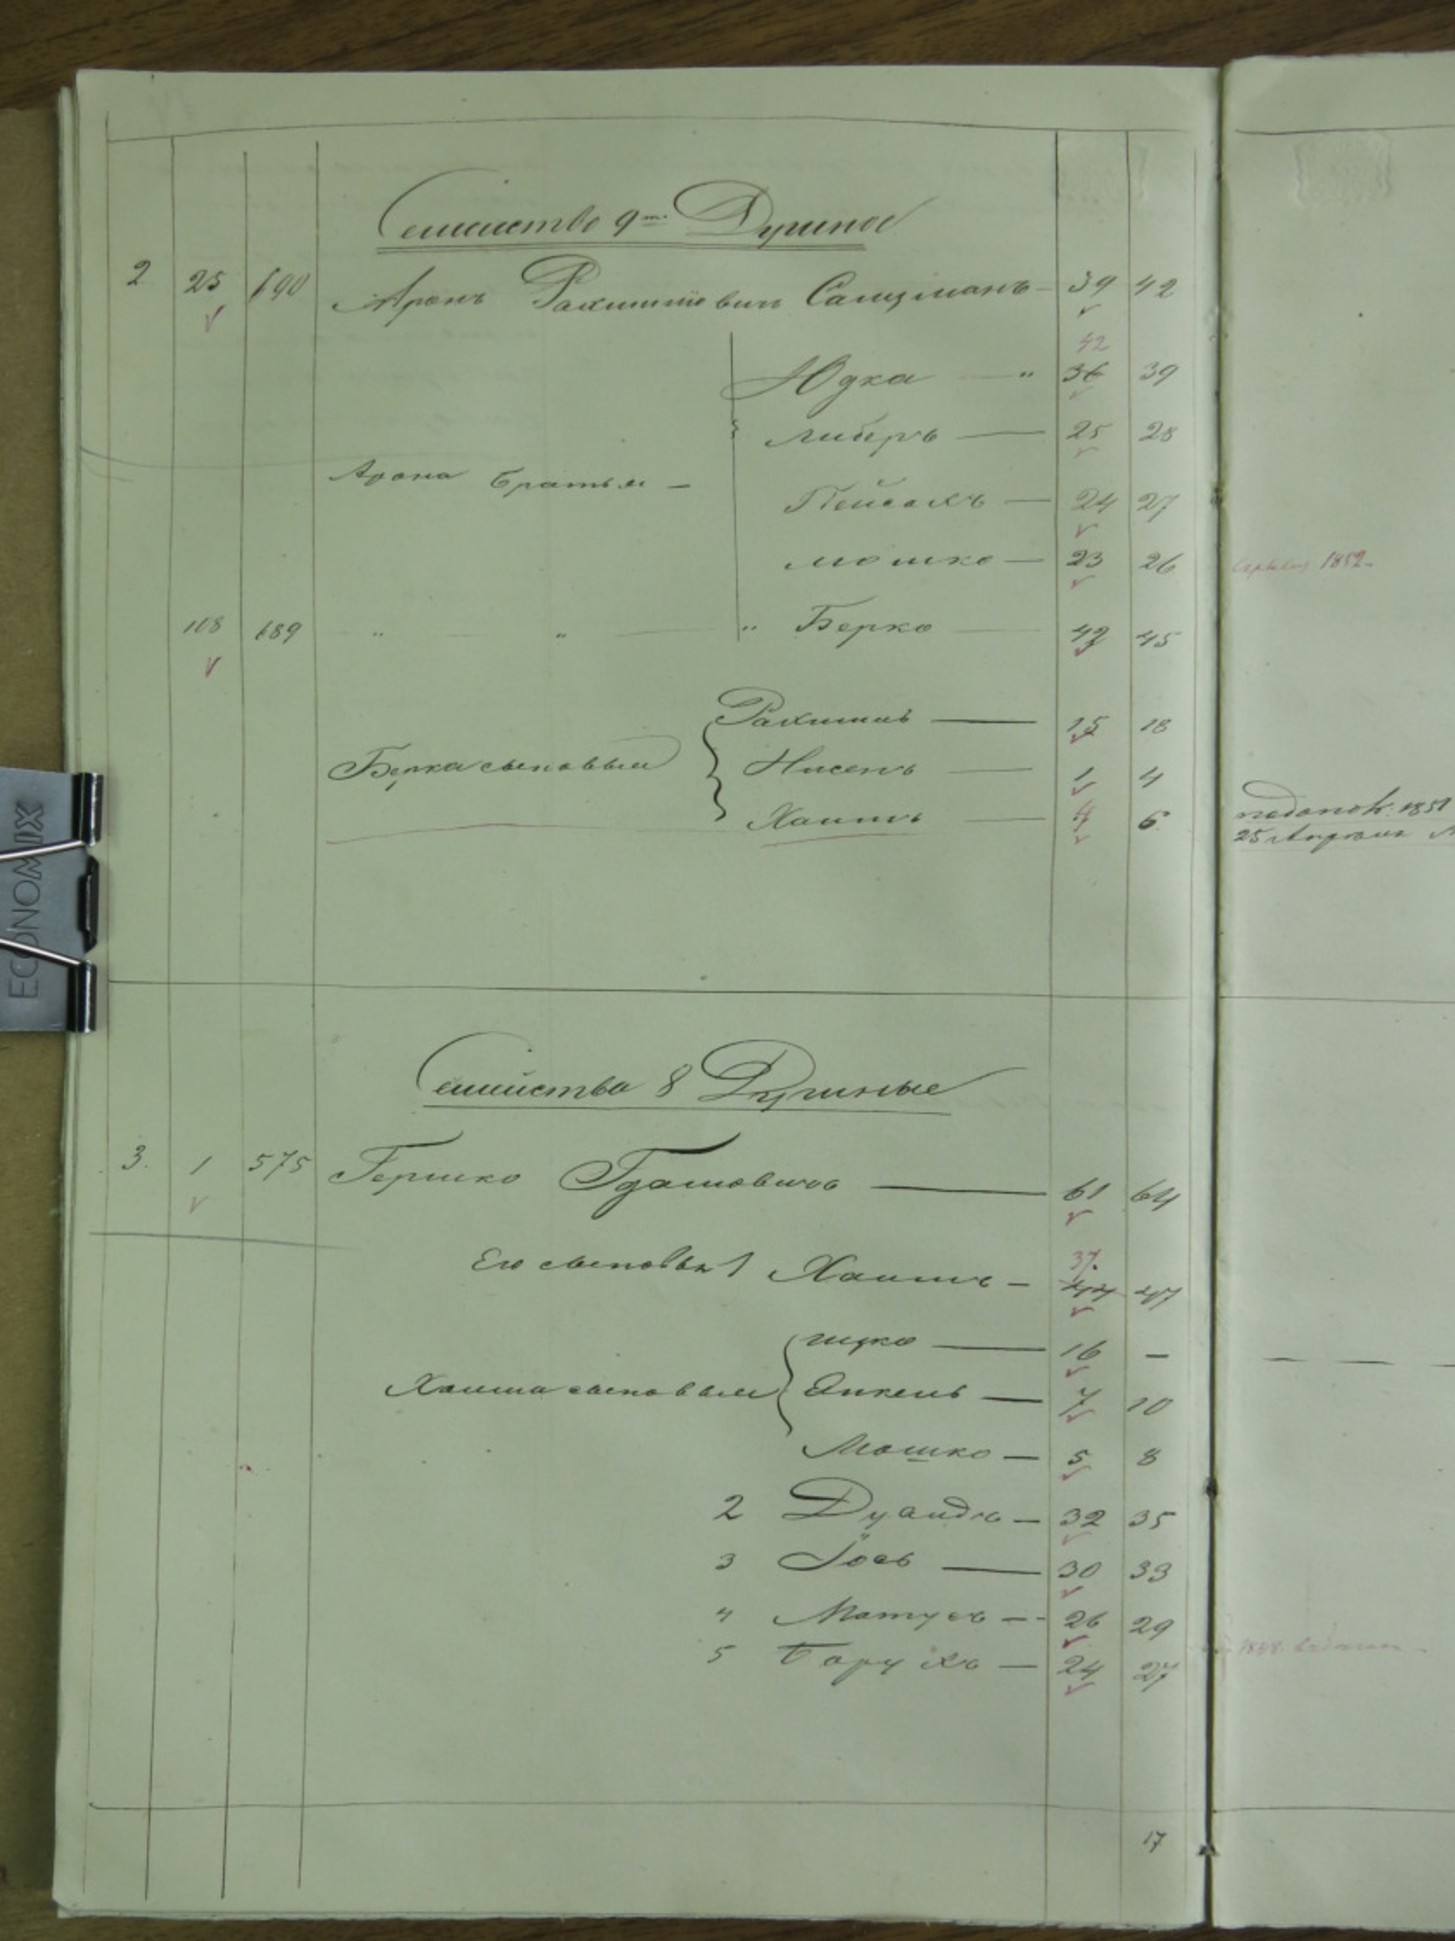 Семейство 9ти Душное
2 25 690 Аронъ Рахмиловичъ Салцманъ — 39 42
42
Юдка — " 36 39
Либеръ — 25 28
Арона братья —
Пейсахъ — 24 27
Мошко — 23 26
1852
108 689 " " " Берко — 42 45
Рахмиль — 15 18
Берка сыновья Нисень — 1 4
Хаимъ — 4 6
1851
25
Семейства 8 Душные
3. 1 575 Гершко — 61 64
37.
Его сыновья 1 Хаимъ — 44 47
Ицко — 16 —
Хаима сыновья Янкель — 7 10
Мошко — 5 8
2 — 32 35
3 Іось — 30 33
4 Матусъ — 26 29
5 Борухъ — 24 27
17
ECONOMIX